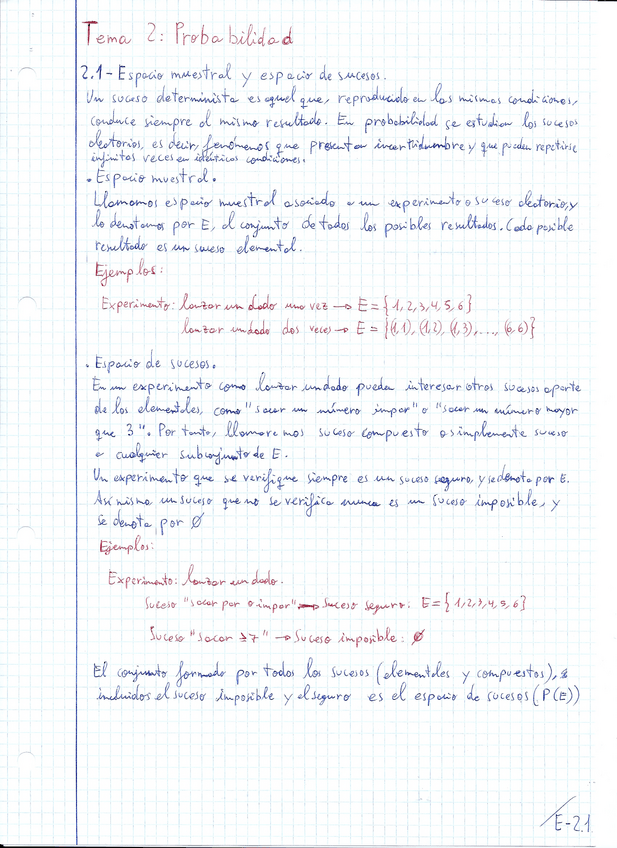 Tema 2: Probabilidad
2.1- Espacio muestral y espacio de sucesos.
Un suceso determinista es aquel que, reproducido en las mismas condiciones,
conduce siempre al mismo resultado. En probabilidad se estudian los sucesos
aleatorios, es decir, fenómenos que presentan incertidumbre y que pueden repetirse
infinitas veces en idénticas condiciones.
· Espacio muestral.
Llamamos espacio muestral asociado a un experimento o suceso aleatorio, y
lo denotamos por E, al conjunto de todos los posibles resultados. Cada posible
resultado es un suceso elemental.
Ejemplos:
Experimento: lanzar un dado una vez → E = {1, 2, 3, 4, 5, 6}
lanzar un dado dos veces → E = {(1,1), (1,2), (1,3), ..., (6,6)}
· Espacio de sucesos.
En un experimento como lanzar un dado pueden interesar otros sucesos aparte
de los elementales, como "sacar un número impar" o "sacar un número mayor
que 3". Por tanto, llamaremos suceso compuesto o simplemente suceso
a cualquier subconjunto de E.
Un experimento que se verifique siempre es un suceso seguro, y se denota por E.
Así mismo un suceso que no se verifica nunca es un suceso imposible, y
se denota por Ø
Ejemplos:
Experimento: lanzar un dado.
Suceso "sacar par o impar" → Suceso seguro: E = {1,2,3,4,5,6}
Suceso "sacar ≥ 7" → Suceso imposible: Ø
El conjunto formado por todos los sucesos (elementales y compuestos),
incluidos el suceso imposible y el seguro es el espacio de sucesos (P(E))
E-2.1